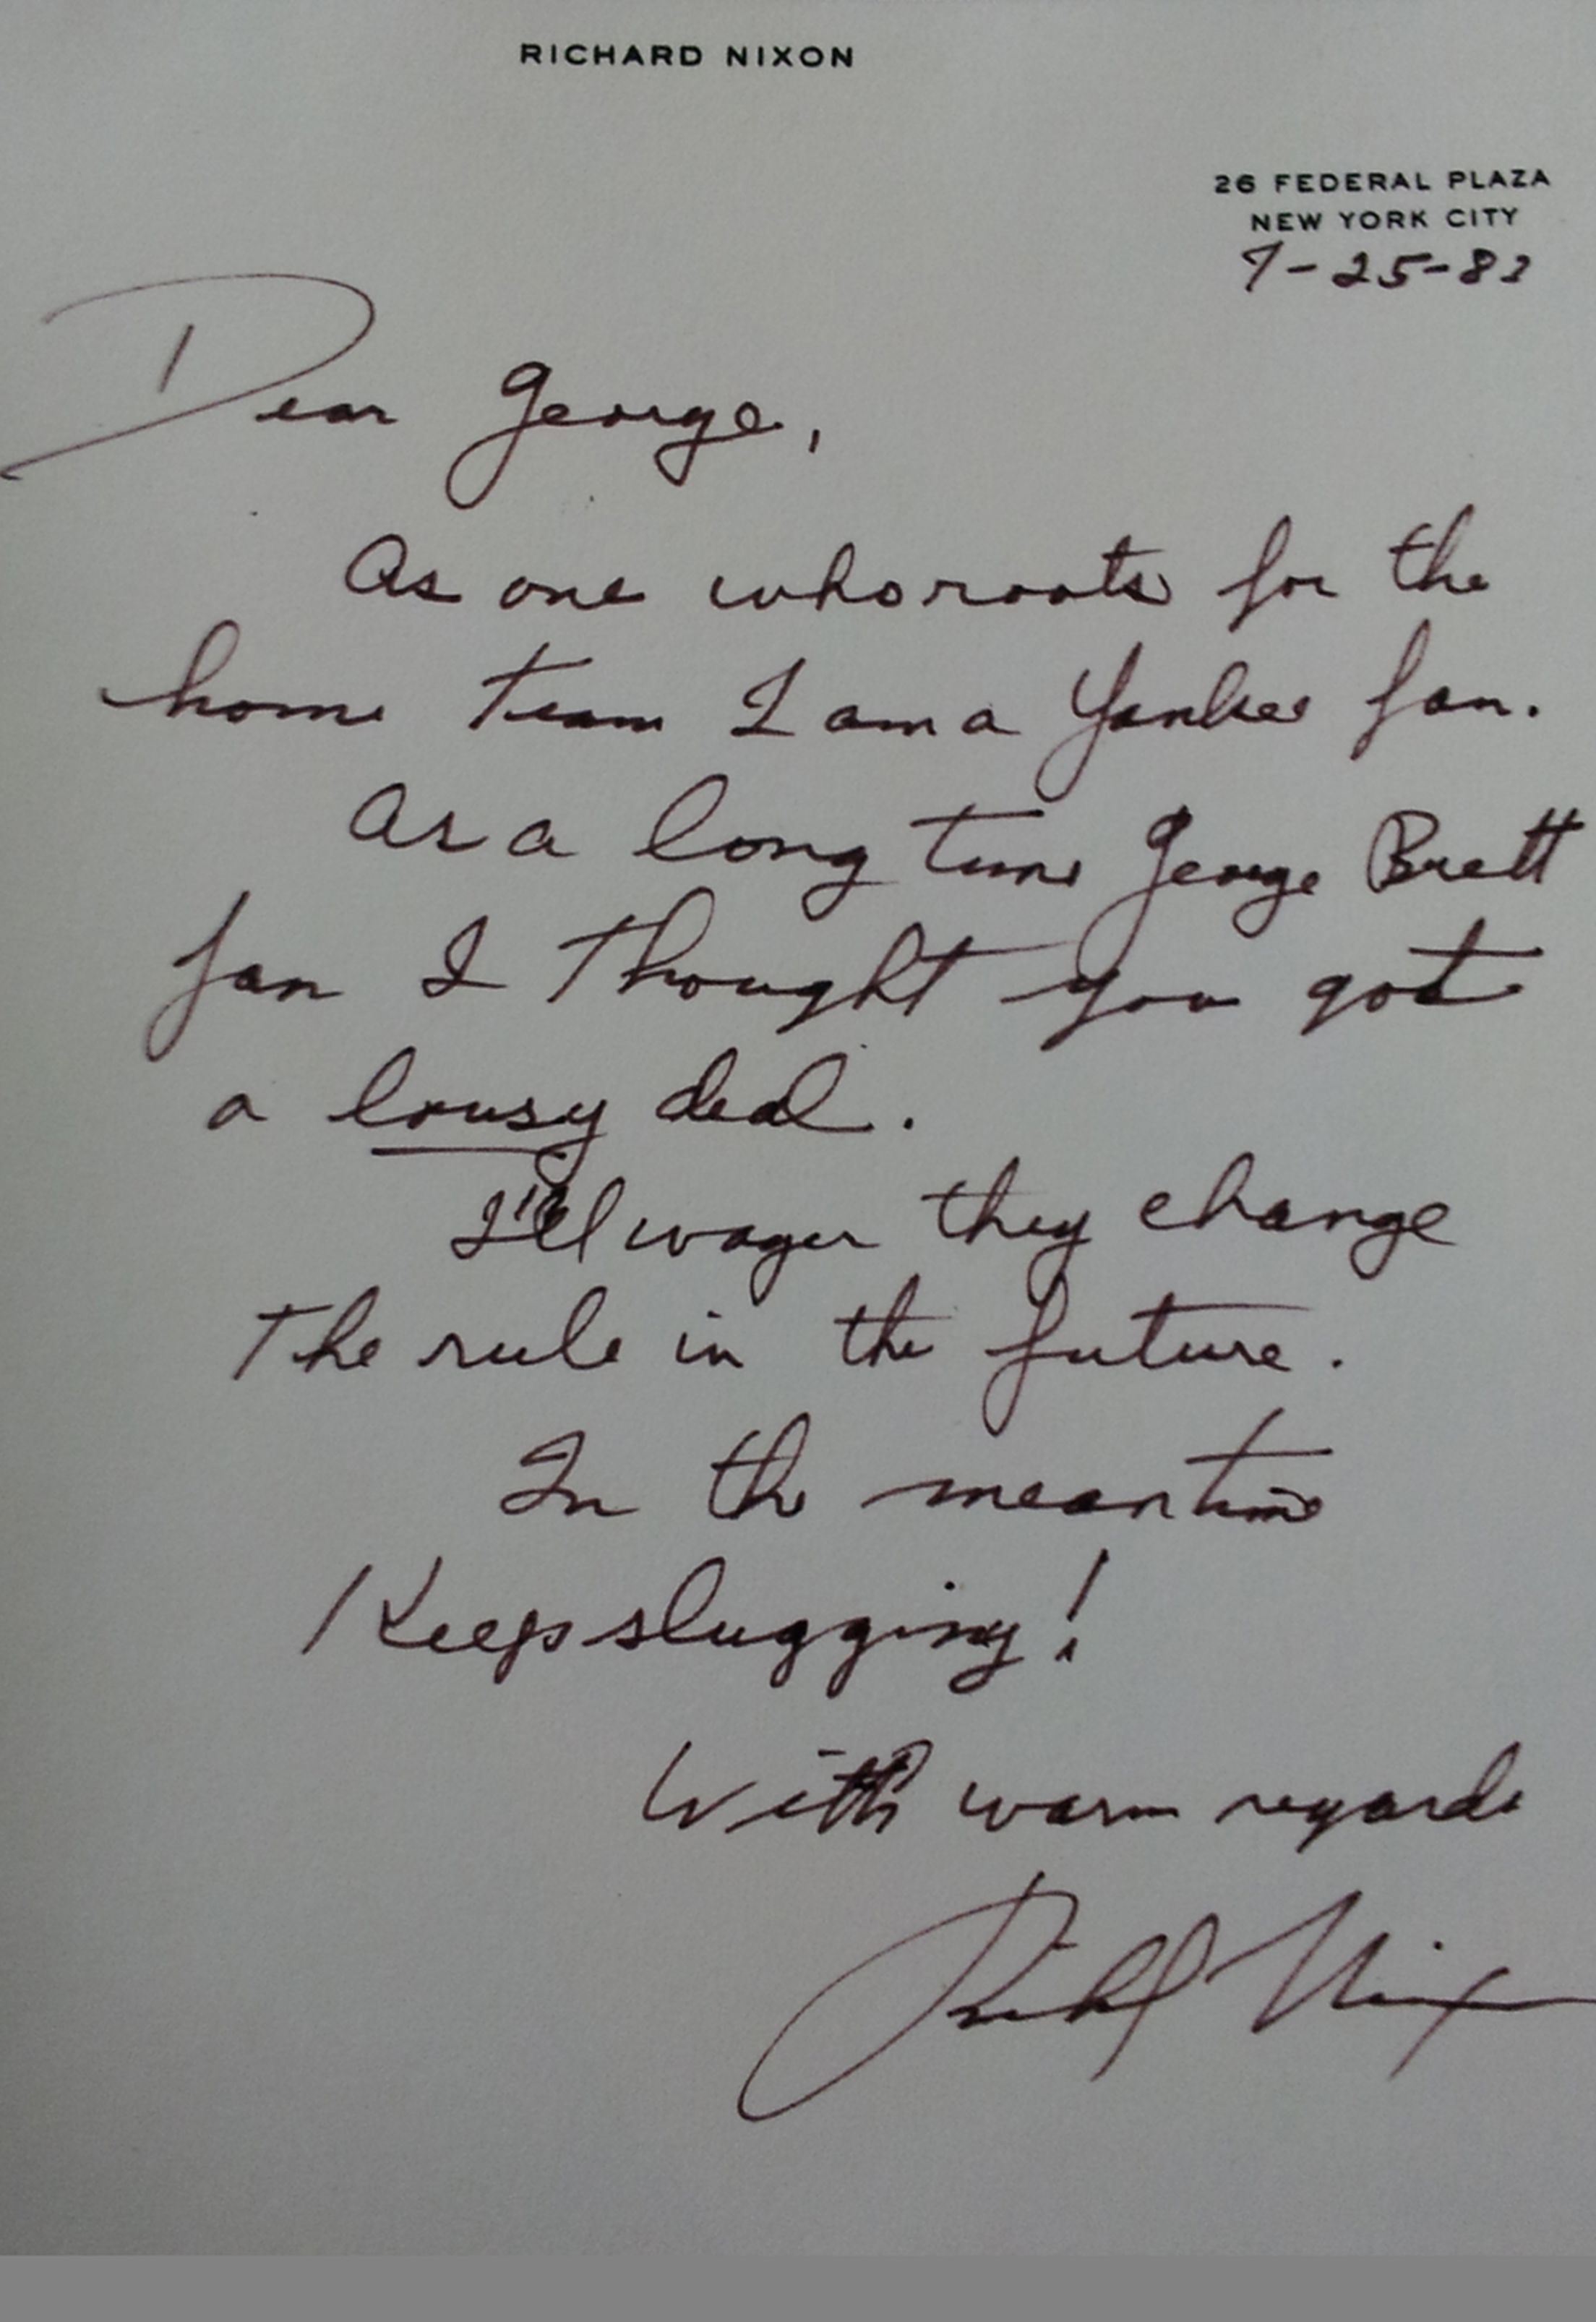 RICHARD NIXON
26 FEDERAL PLAZA
NEW YORK CITY
7-25-83
Dear George,
As one who roots for the
home team I am a Yankee fan.
As a long time George Brett
fan I thought you got
a lousy deal.
I'll wager they change
the rule in the future.
In the meantime
Keep slugging!
With warm regards
Richard Nixon